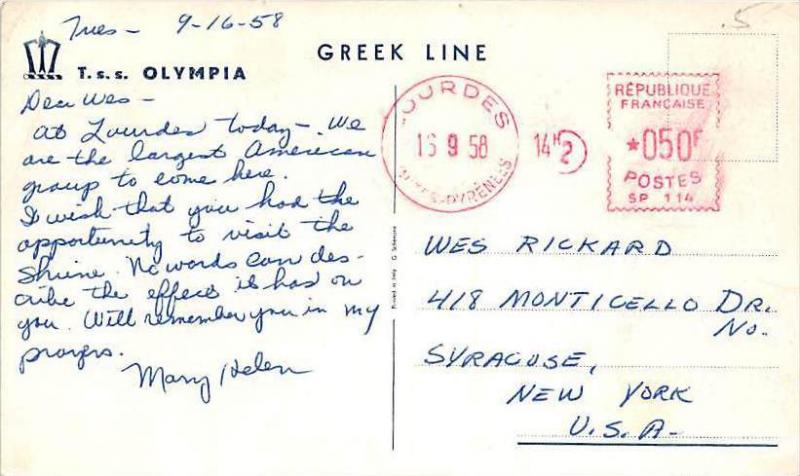 Tues - 9-16-58
.5
GREEK LINE
T.S.S. OLYMPIA
Dear Wes -
At Lourdes today - We
are the largest American
group to come here.
I wish that you had the
opportunity to visit the
Shrine. No words can des-
cribe the effect it has on
you. Will remember you in my
prayers.
Mary Helen
LOURDES
16 9 58
HTES-PYRÉNÉES
14H 2
RÉPUBLIQUE
FRANÇAISE
*050F
POSTES
SP 114
Printed in Italy
WES RICKARD
418 MONTICELLO DR.
NO.
SYRACUSE,
NEW YORK
U.S.A-